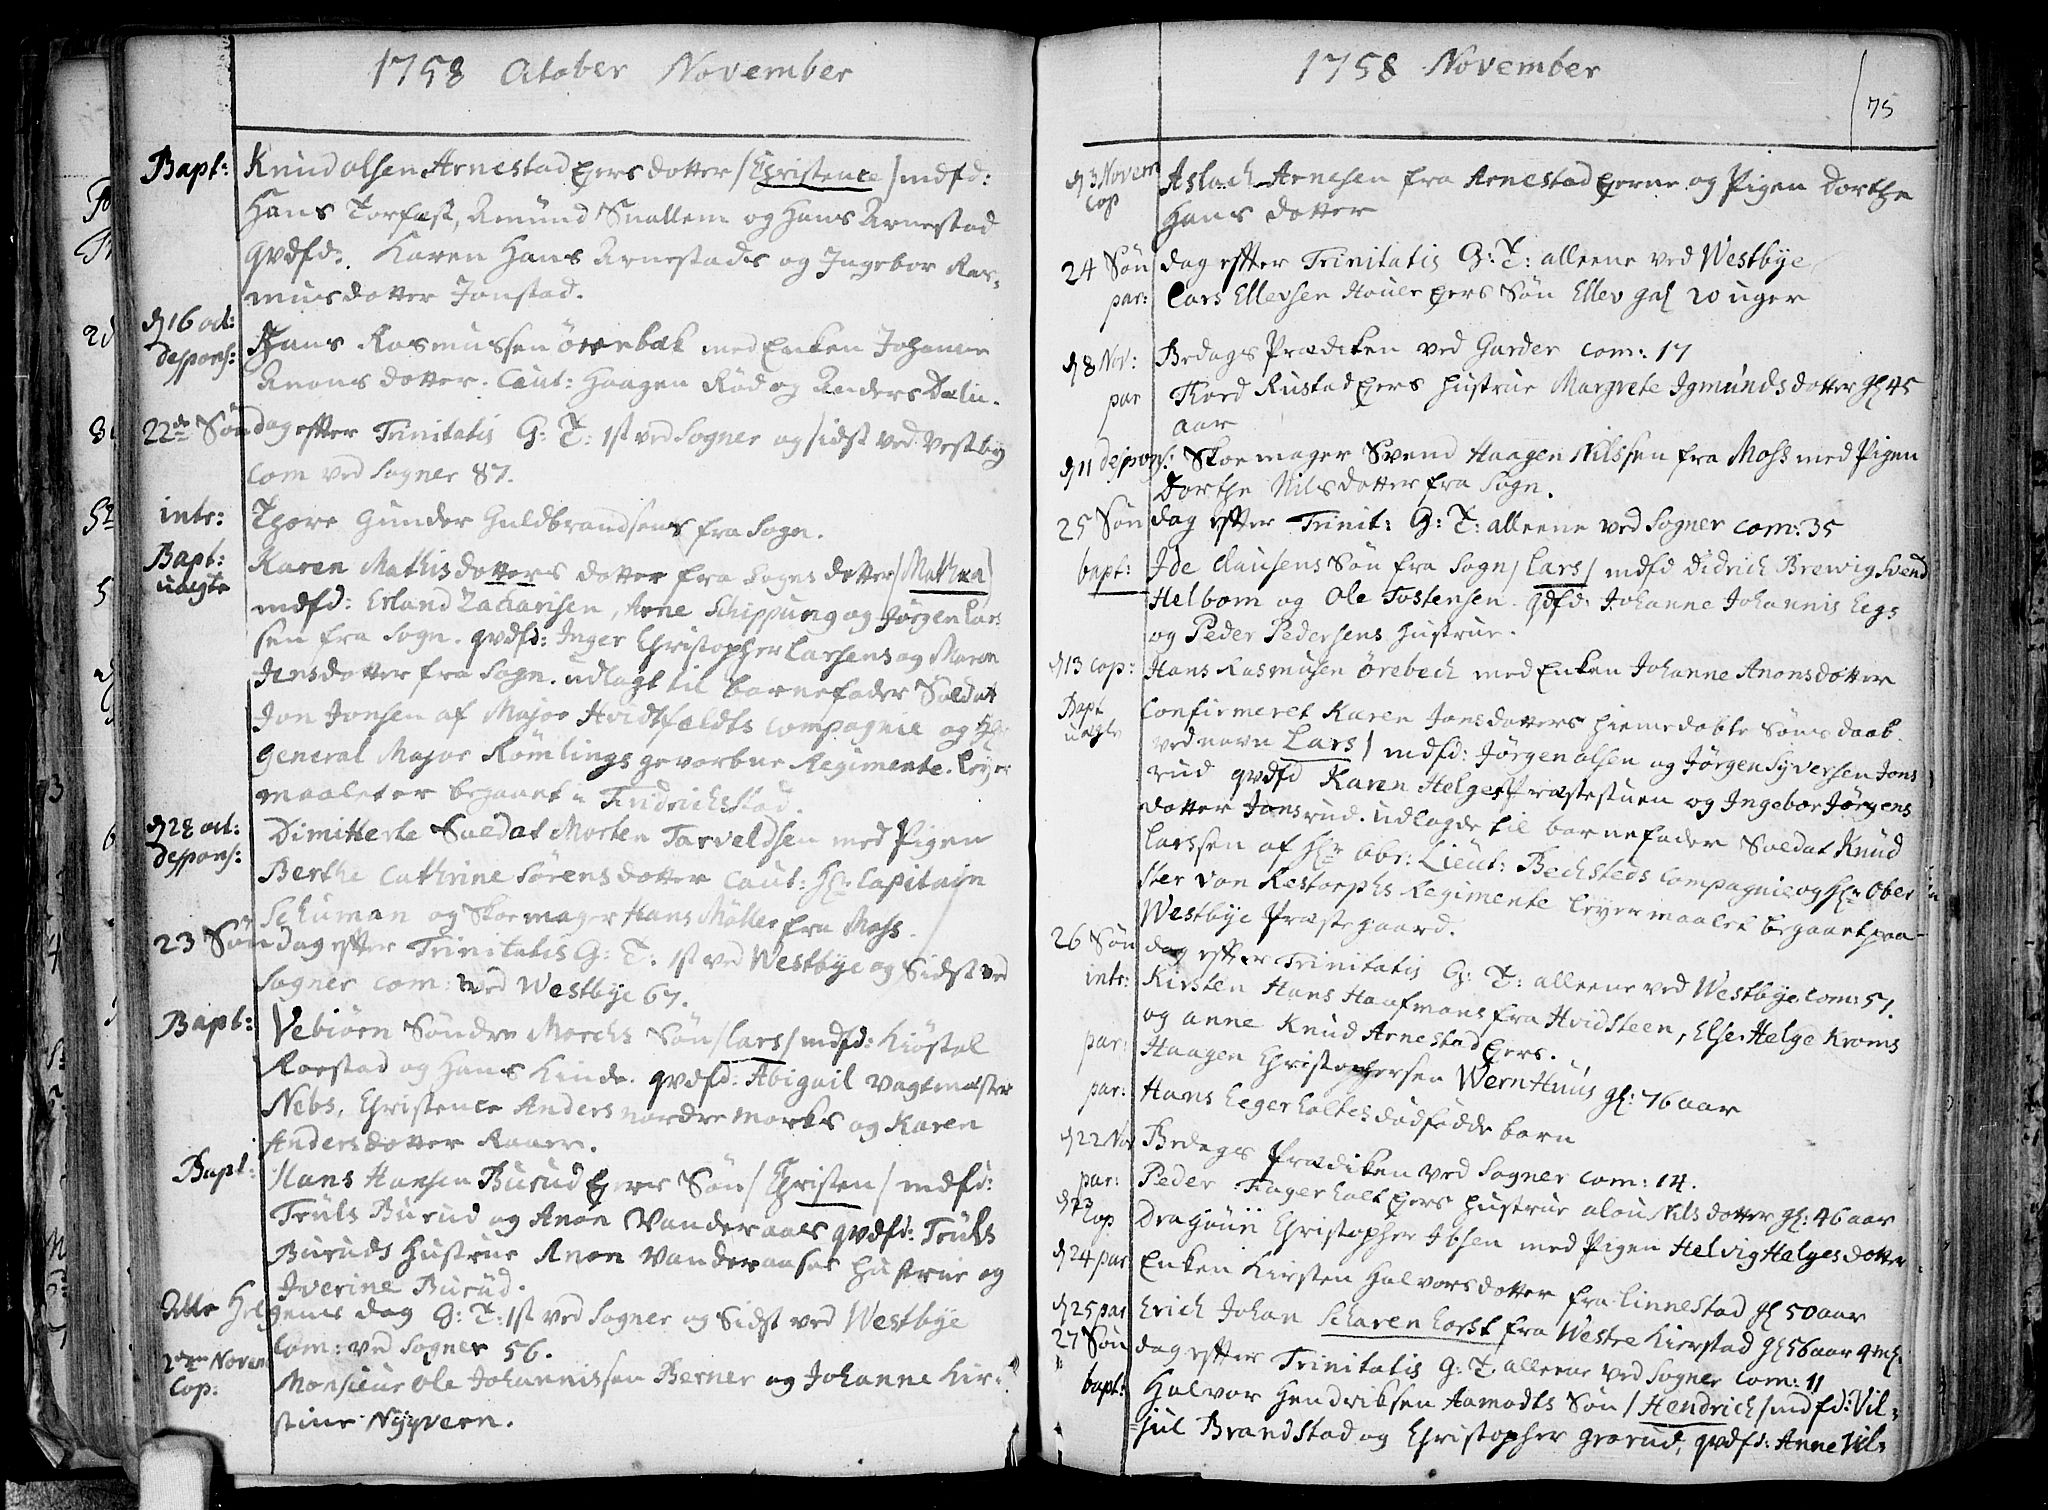 1758 October November
Bapt: Knud olsen Arnestad Ejers dotter / Christence / mdfd:
Hans Torfast, Amund Snallem og Hans Arnestad
qvdfd: Karen Hans Arnestads og Ingebor Ras,
musdotter Jonstad.
d 16 oct: despons: Hans Rasmussen Örebæk med Enken Johanne
Anons dotter. Caut: Haagen Röd og Anders Dælin.
22de Söndag efter Trinitatis G: T: 1st ved Sogner og sidst ved Vestby
Com ved Sogner 87.
intr: Thore Gunder Guldbrandsens fra Sogn.
Bapt: uægte Karen Mathisdotters dotter fra Sogns dotter / Mathea /
mdfd: Erland Zacharisen, Arne Schippung og Jörgen Lars
sen fra Sogn. qvdfd: Inger Christopher Larsens og Maren
Jensdotter fra Sogn. udlagt til barnefader Soldat
Jon Jonsen af Major Hvidtfældts Compagnie og Hr:
General Major Römlings gevorbne Regimente. Leyer
maalet er begaaet i Fridrichstad.
d 28 oct: despons: Dimitterte Soldat Morten Tarveldsen med Pigen
Berthe Cathrine Sörensdotter Caut: Hr: Capitain
Schuman og Skoemager Hans Möller fra Moss.
23 Söndag efter Trinitatis G: T: 1st ved Westbye og Sidst ved
Sogner com: ved Westbye 67.
Bapt: Vebiörn Söndre Morchs Sön / Lars / mdfd: Kiöstel
Rorstad og Hans Kinde. qvdfd: Abigail Vagtmester
Nebs, Christence Anders nordre Morks og Karen
Andersdotter Raaer.
Bapt: Hans Hansen Burud Ejers Sön / Christen / mdfd:
Truls Burud og Anon Vanderaaes qvdfd: Truls
Buruds Hustrue Anon Vanderaases Hustrue og
Iverine Burud.
Alle Helgens dag G: T: 1st ved Sogner og Sidst ved Westbye
Com: ved Sogner 56.
2den Novem Cop: Monsieur Ole Johannissen Berner og Johanne Kir,
stine Nyyveen.
1758 November
75
d 3 Novem Cop Aslach Arnesen fra Arnestad Ejerne og Pigen Dorthe
Hans dotter
24 Söndag efter Trinitatis G: T: alleene ved Westbye
par: Lars Ellevsen Houer Ejers Sön Ellev gl 20 uger
d 8 Nov: Bedags Prædiken ved Garder com: 17
par Tord Rustad Ejers Hustrue Margrete Igmundsdotter gl 45
aar
d 11 despons: Skoemager Svend Haagen Nilssen fra Moss med Pigen
Dorthe Nilsdotter fra Sogn.
25 Söndag efter Trinit: G: T: alleene ved Sogner com: 35
bapt: Ide Clausens Sön fra Sogn / Lars / mdfd Didrich Brewig Svend
Helbom og Ole Tostensen. qdfd: Johanne Johannis Eegs
og Peder Pedersens Hustrue.
d 13 Cop: Hans Rasmusen Örebech med Enken Johanne Anonsdotter
Bapt uægte Confirmeret Karen Jonsdotters hiemedöbte Söns daab
ved navn Lars / mdfd: Jörgen Olsen og Jörgen Syversen Jons
rud qvdfd Karen Helges Præstestuen og Ingebor Jörgens
dotter Jonsrud. udlagde til barnefader Soldat Knud
Larssen af Hr Obr: Lieut: Bechsteds Compagnie og Hr Ober
ster von Restorphs Regimente Leyermaalet begaaet paa
Westbye Præstegaard.
26 Söndag efter Trinitatis G: T: alleene ved Westbye Com: 57.
intr: Kirsten Hans Haafmans fra Hvidsteen, Else Helge Kroms
og anne Knud Arnestad Ejers.
par: Haagen Christophersen Wern Huus gl: 76 aar
par: Hans Eegerholtes dödfödde barn
d 22 No Bedags Prædiken ved Sogner com: 14.
par: Peder Fagerholt Ejers Hustrue alou Nilsdotter gl: 46 aar
d 23 Cop Dragouin Christopher Ibsen med Pigen Helvig Helgesdotter
d 24 par Enken Kirsten Halvorsdotter fra Linnestad gl 50 aar
d 25 par Erich Johan Scharenhorst fra Westre Kierstad gl 56 aar 4 mh.
27 Söndag efter Trinitatis G: T: alleene ved Sogner Com: 11
bapt: Halvor Hendriksen Aamodts Sön / Hendrich / mdfd: Vil,
jul Brandstad og Christopher Grorud, qvdfd: Anne Vil,